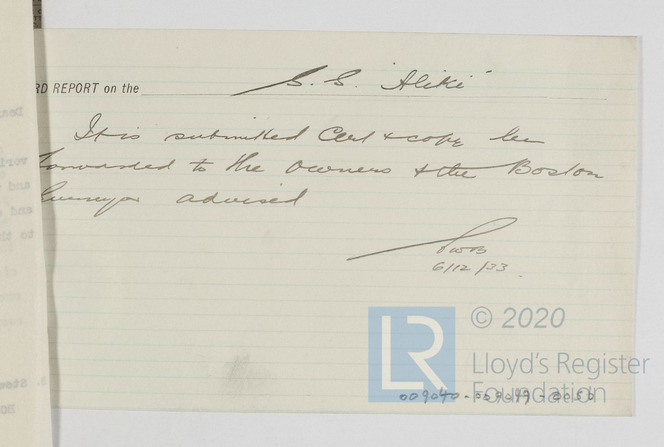 RD REPORT on the S.S. "Aliki"
It is submitted Cert & copy be
forwarded to the Owners & the Boston
Surveyor advised
6/12/33.
LR
© 2020
Lloyd's Register
Foundation
009040-009049-0050